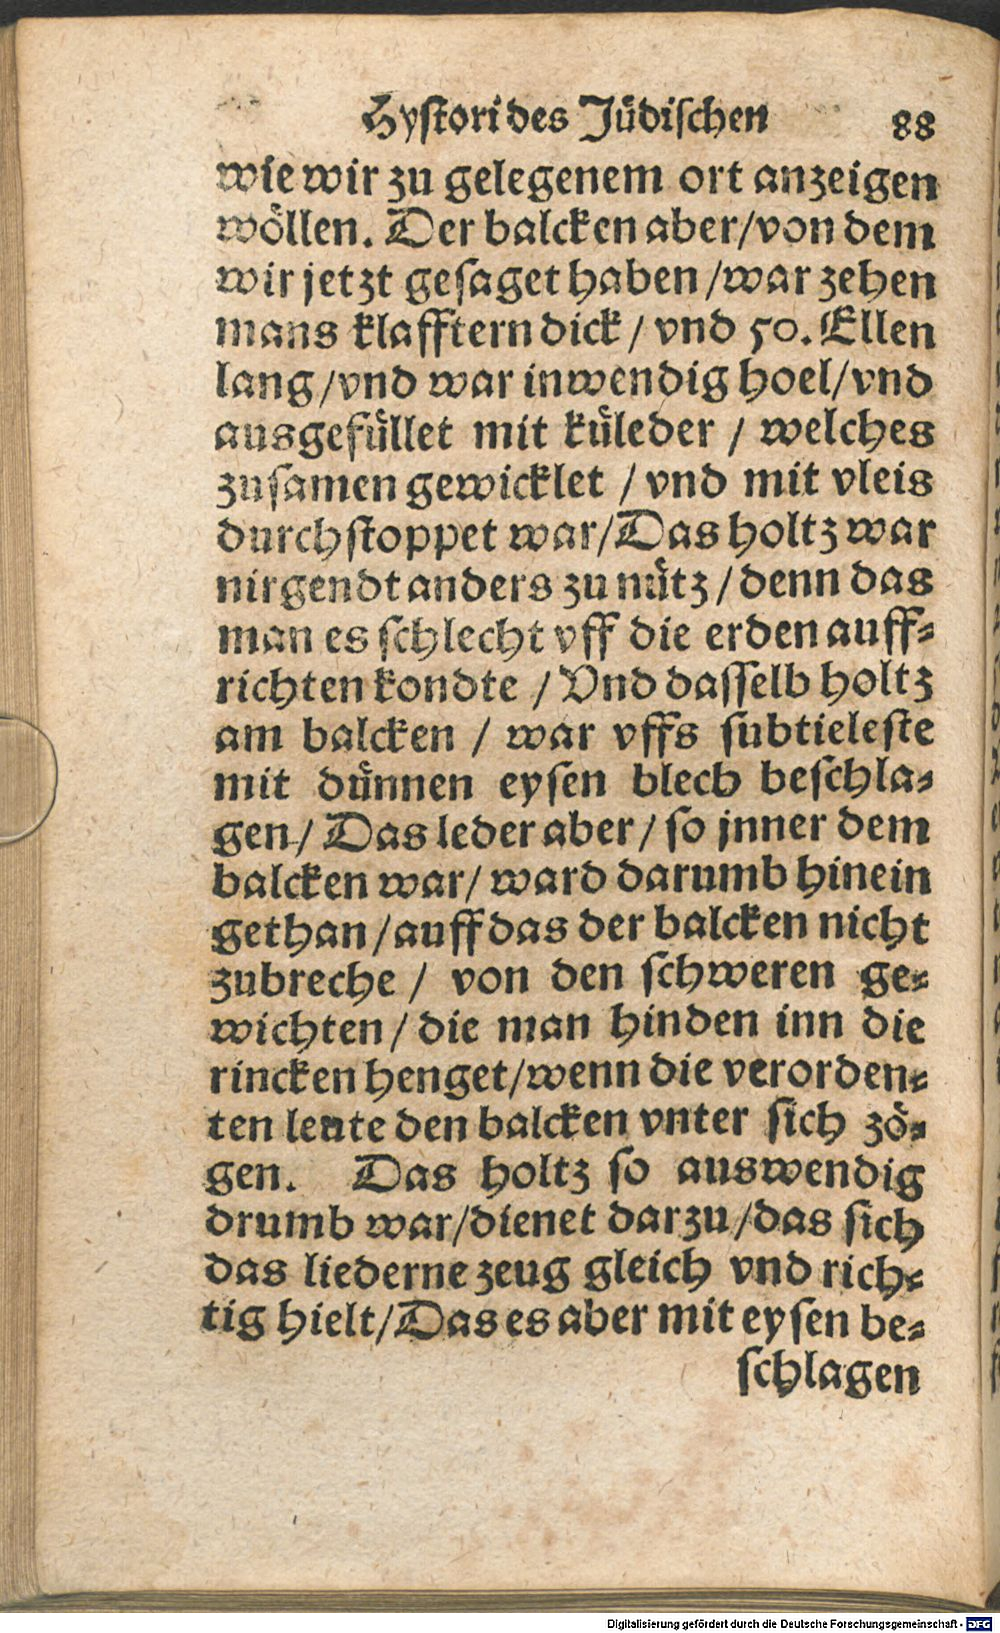 Hystori des Jüdischen 88
wie wir zu gelegenem ort anzeigen
wöllen. Der balcken aber/von dem
wir jetzt gesaget haben/war zehen
mans klafftern dick/ vnd 50. Ellen
lang/vnd war inwendig hoel/vnd
ausgefüllet mit küleder/ welches
zusamen gewicklet/ vnd mit vleis
durchstoppet war/Das holtz war
nirgendt anders zu nütz/denn das
man es schlecht vff die erden auff-
richten kondte/ Vnd dasselb holtz
am balcken/ war vffs subtieleste
mit dünnen eysen blech beschla-
gen/ Das leder aber/ so jnner dem
balcken war/ ward darumb hinein
gethan/auff das der balcken nicht
zubreche/ von den schweren ge-
wichten/ die man hinden inn die
rincken henget/wenn die verorden-
ten leute den balcken vnter sich zö-
gen. Das holtz so auswendig
drumb war/dienet darzu/das sich
das liederne zeug gleich vnd rich-
tig hielt/Das es aber mit eysen be-
schlagen
Digitalisierung gefördert durch die Deutsche Forschungsgemeinschaft - DFG